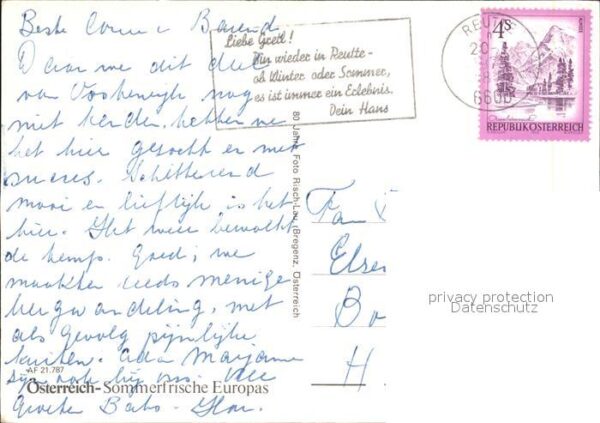 Beste Corrie Barend
Daar we dit deel
van Oostenrijk nog
niet kenden, hebben we
het hier gezocht en met
succes. Schitterend
mooi en lieflijk is het
hier. Het weer bewolkt
de temp. Goed; we
maakten reeds menige
bergwandeling, met
als gevolg pijnlijke
kuiten. Ada Marjanne
zijn ook bij ons. Vele
Groeten Bato-
Liebe Gretl!
Bin wieder in Reutte-
ob Winter oder Sommer,
es ist immer ein Erlebnis.
Dein Hans
REUTTE
20-
6600
4S
REPUBLIK ÖSTERREICH
80 Jahre Foto Risch-Lau, Bregenz, Österreich
Fam
Elsen
Bo
H
privacy protection
Datenschutz
AF 21.787
Österreich-Sommerfrische Europas